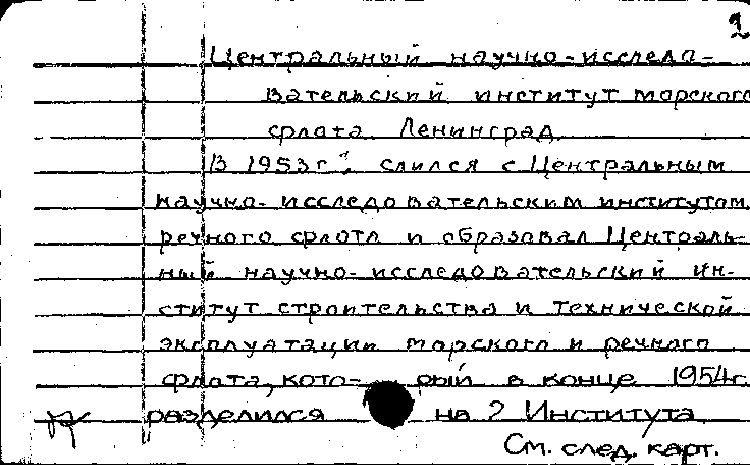 2
Центральный научно-исследо-
вательский институт морского
флота Ленинград
В 1953 г. слился с Центральным
научно-исследовательским институтом
речного флота и образовал Централь-
ный научно-исследовательский ин-
ститут строительства и технической
эксплуатации морского и речного
флота, кото- рый в конце 1954г.
разделился на 2 Института
См. след. карт.